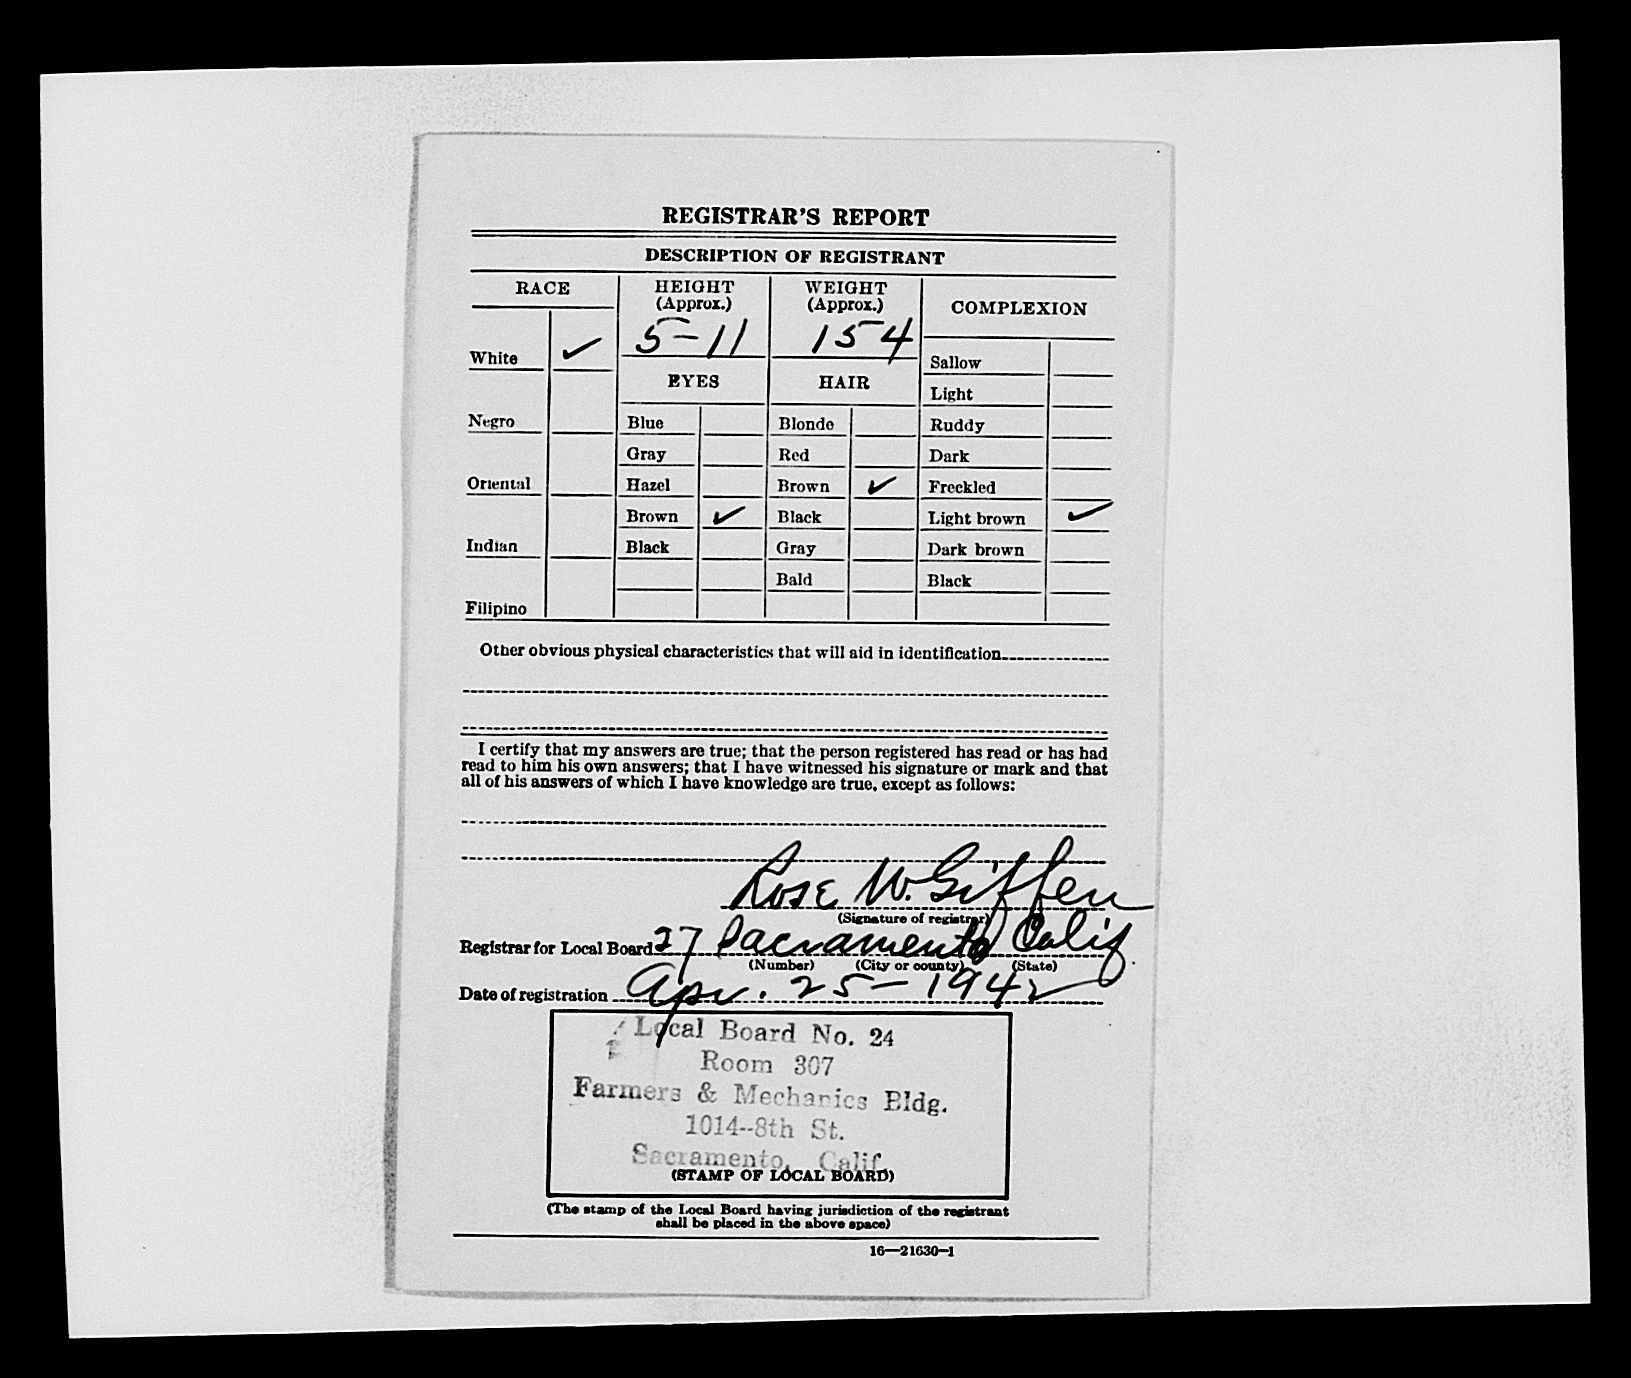 REGISTRAR'S REPORT
DESCRIPTION OF REGISTRANT
RACE
HEIGHT
(Approx.)
WEIGHT
(Approx.)
COMPLEXION
White ✓
5-11
154
Sallow
EYES
HAIR
Light
Negro
Blue
Blonde
Ruddy
Gray
Red
Dark
Oriental
Hazel
Brown ✓
Freckled
Brown ✓
Black
Light brown ✓
Indian
Black
Gray
Dark brown
Bald
Black
Filipino
Other obvious physical characteristics that will aid in identification
I certify that my answers are true; that the person registered has read or has had
read to him his own answers; that I have witnessed his signature or mark and that
all of his answers of which I have knowledge are true, except as follows:
Rose W. Giffen
(Signature of registrar)
Registrar for Local Board 27 Sacramento Calif.
(Number) (City or county) (State)
Date of registration Apr. 25-1942
Local Board No. 24
Room 307
Farmers & Mechanics Bldg.
1014--8th St.
Sacramento, Calif.
(STAMP OF LOCAL BOARD)
(The stamp of the Local Board having jurisdiction of the registrant
shall be placed in the above space)
16—21630-1